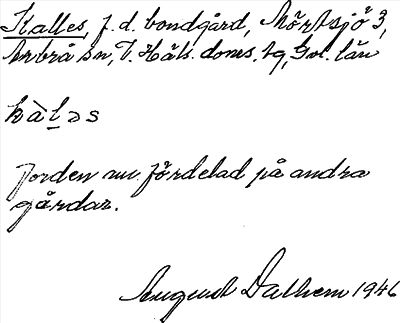 Kalles, f. d. bondgård, Mörtsjö 3,
Arbrå sn, V. Häls. doms. tg, Gvl. län
kàl̲əs
Jorden nu fördelad på andra
gårdar.
August Dalhem 1946